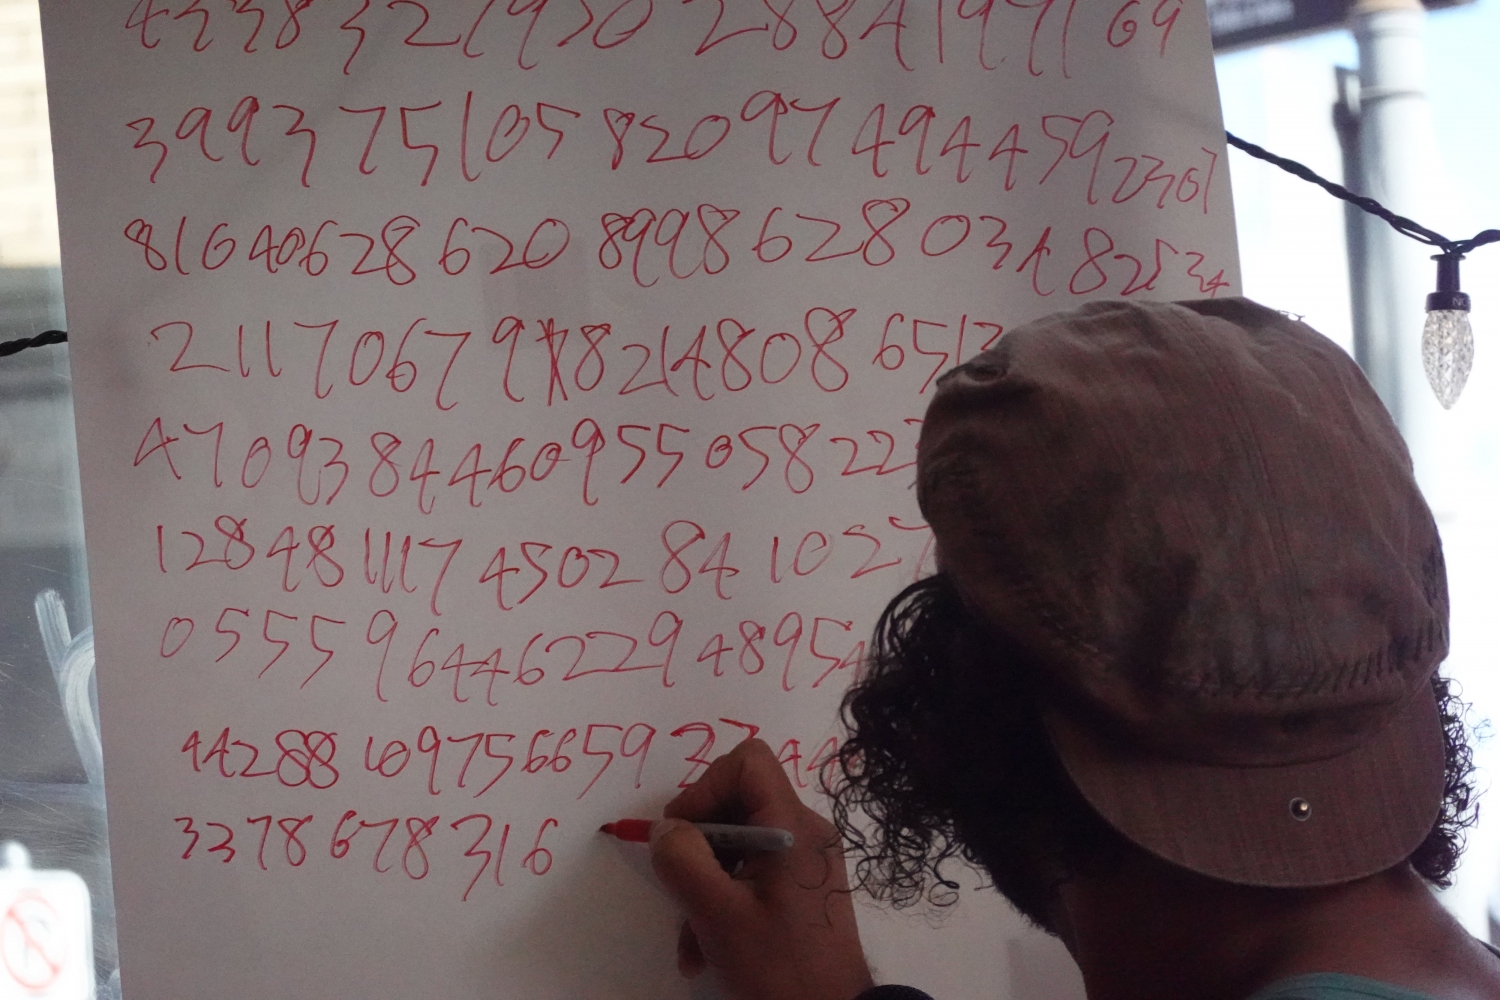 4338327950 2884197169
399375105820974944592307
8164062862089986280348253 4
21170679 8214808651 3
47093844609550582 2
12848111745028410 27
0555964462294895 4
44288109756659 3
3378678316